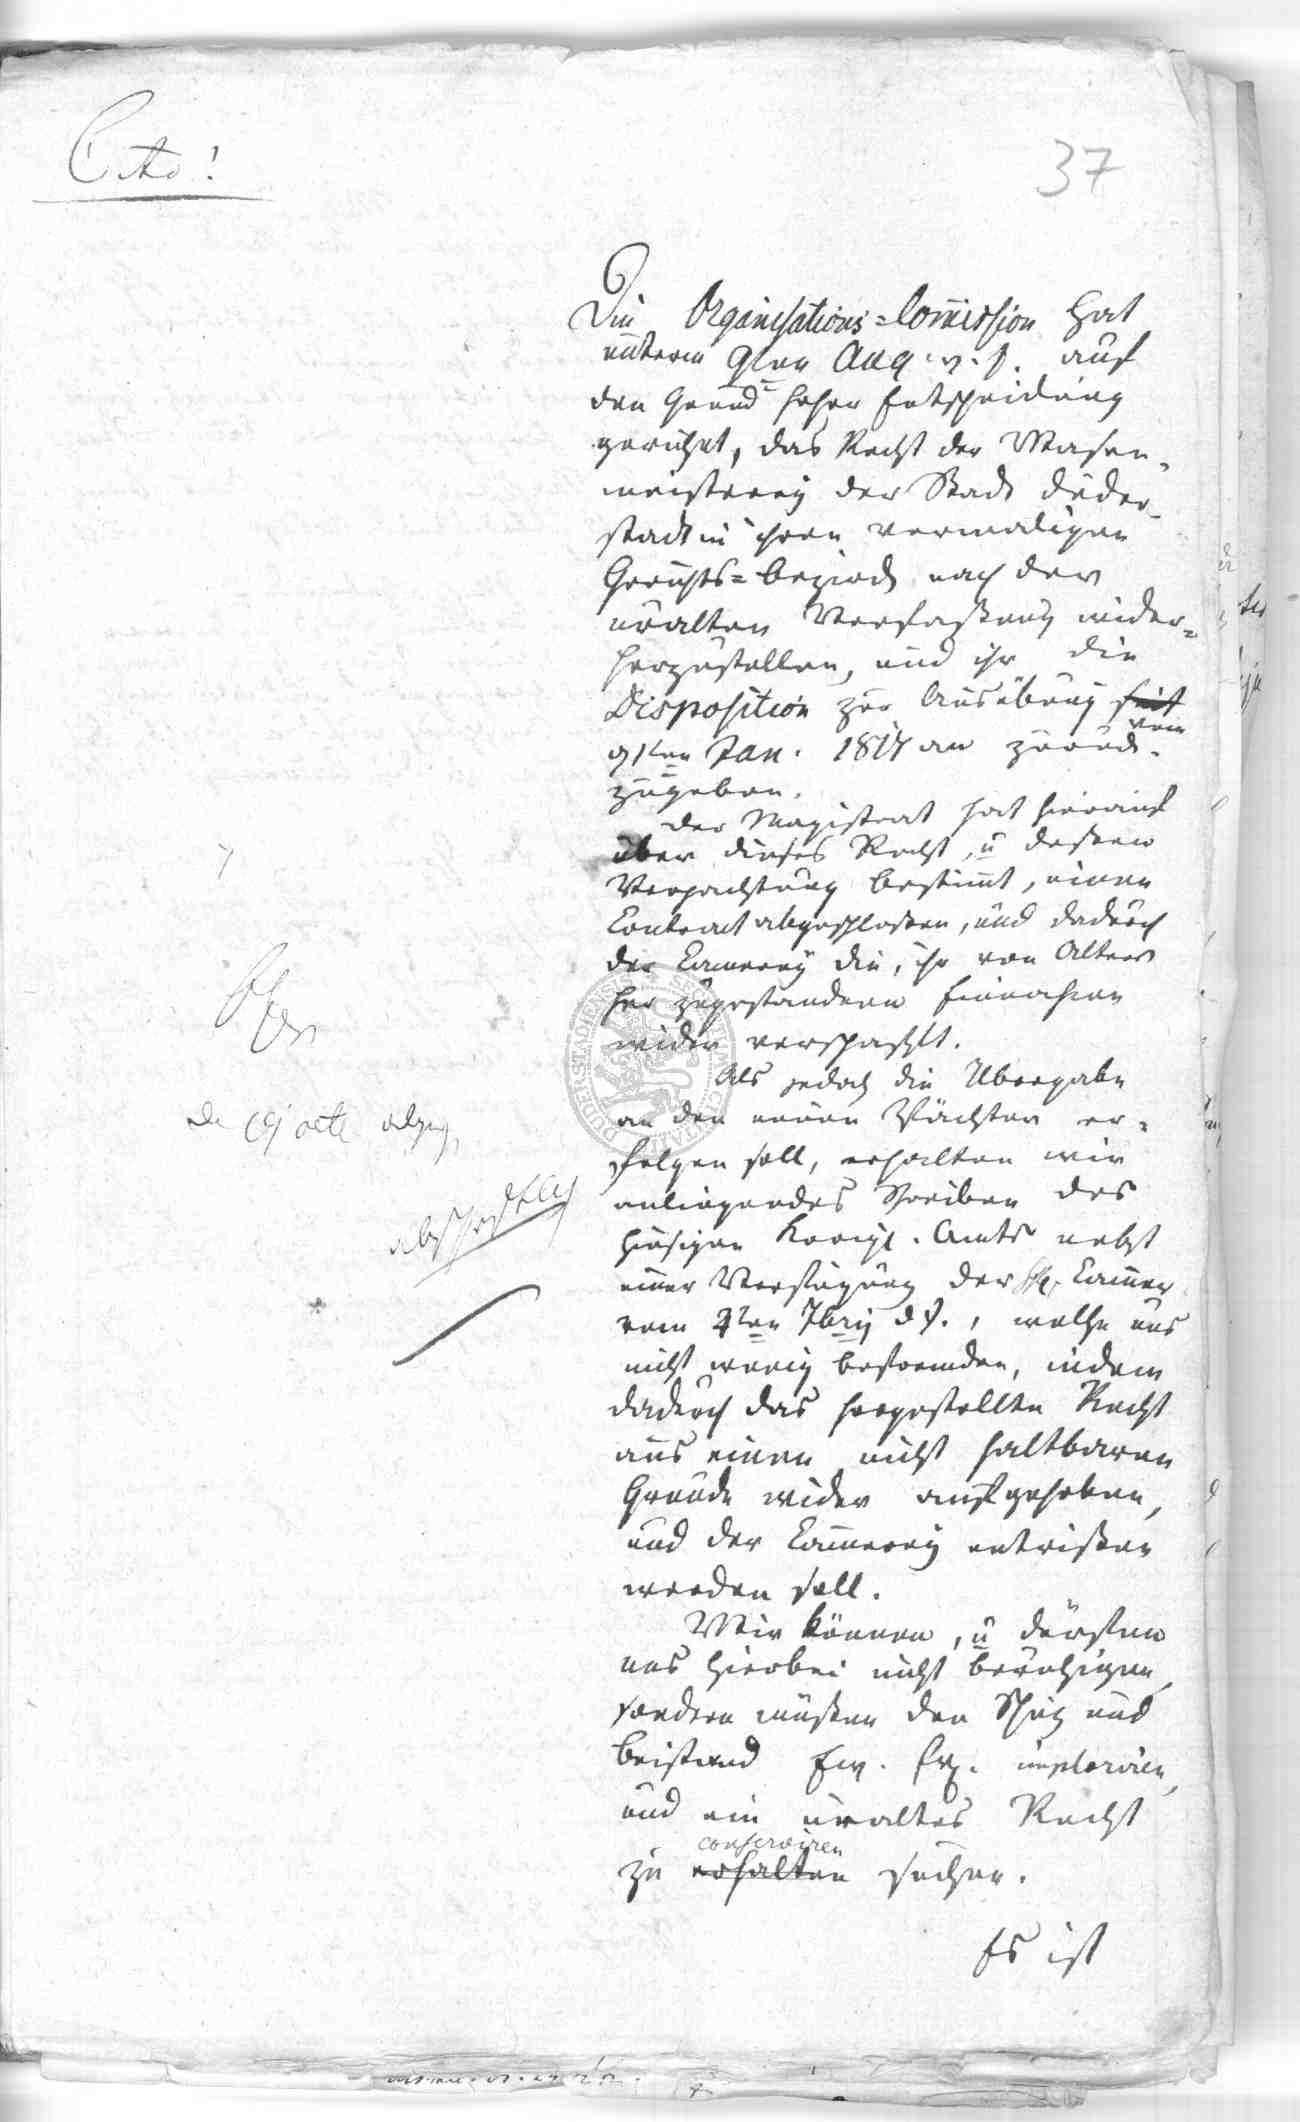 Cito!
37
Die Organisations=Commission hat
unterm 9ten Aug. v. J. auf
den Grund hoher Entscheidung
geruhet, das Recht der Wasen-
meisterey der Stadt Duder-
stadt in ihren vormaligen
Gerichts=bezirck nach der
uralten Verfaßung wider=
herzustellen, und ihr die
Disposition zur Ausübung seit
vom
1ten Jan. 1817 an zurück-
zugeben.
Der Magistrat hat hierauf
über dieses Recht, u dessen
Verpachtung bestimmt, einen
Contract abgeschlossen, und dadurch
der Cämmerey die, ihr von Alters
her zugestandene Einnahme
wider verschafft.
Als jedoch die Übergabe
an den neuen Pächter er-
folgen soll, erhalten wir
anliegendes Schreiben des
hiesigen Königl. Amts nebst
einer Verfügung der Cammer
vom 2ten 7bris d. J., welche uns
nicht wenig befremden, indem
dadurch das hergestellte Recht
aus einen nicht haltbaren
Grunde wider aufgehoben,
und der Cämmerey entrißen
werden soll.
Wir können, u dürfen
uns hierbei nicht beruhigen,
sondern müßen den Schuz und
Beistand Ew. Ex. imploriren,
und ein uraltes Recht
conserviren
zu erhalten suchen.
Es ist
abschriftlich